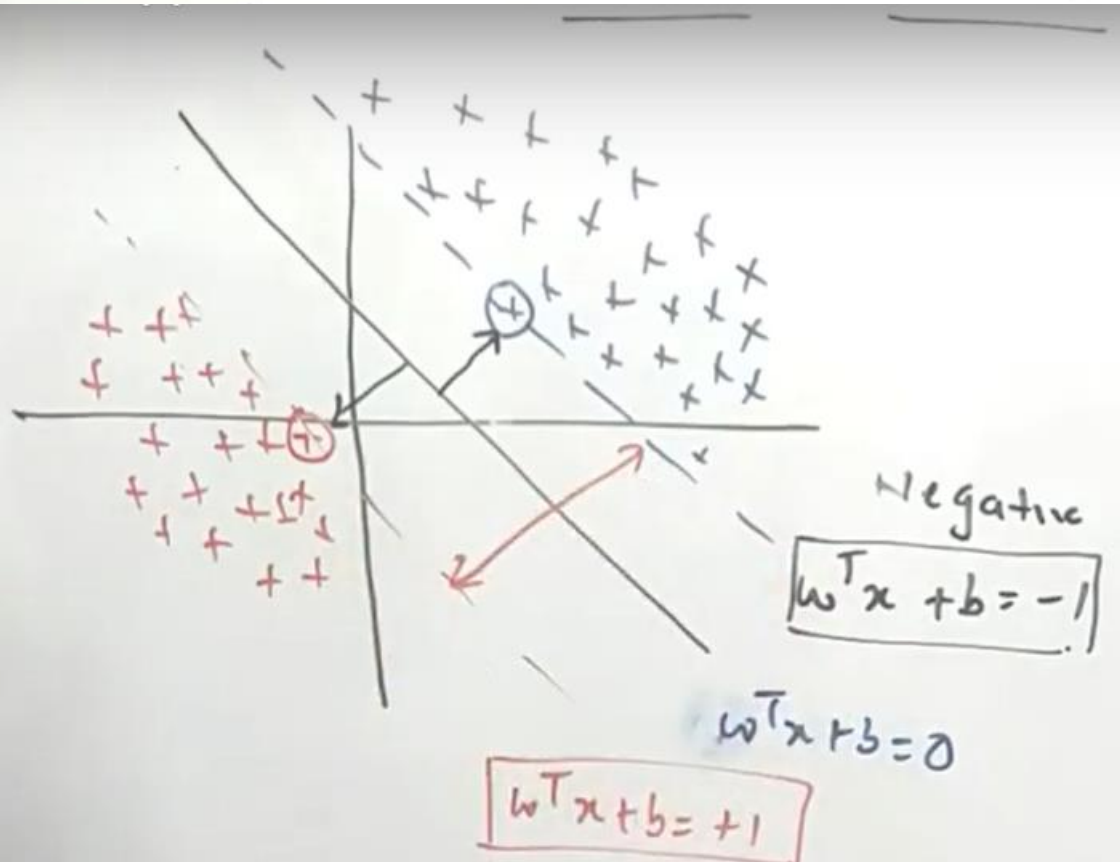 Negative
w^T x + b = -1
w^T x + b = 0
w^T x + b = +1